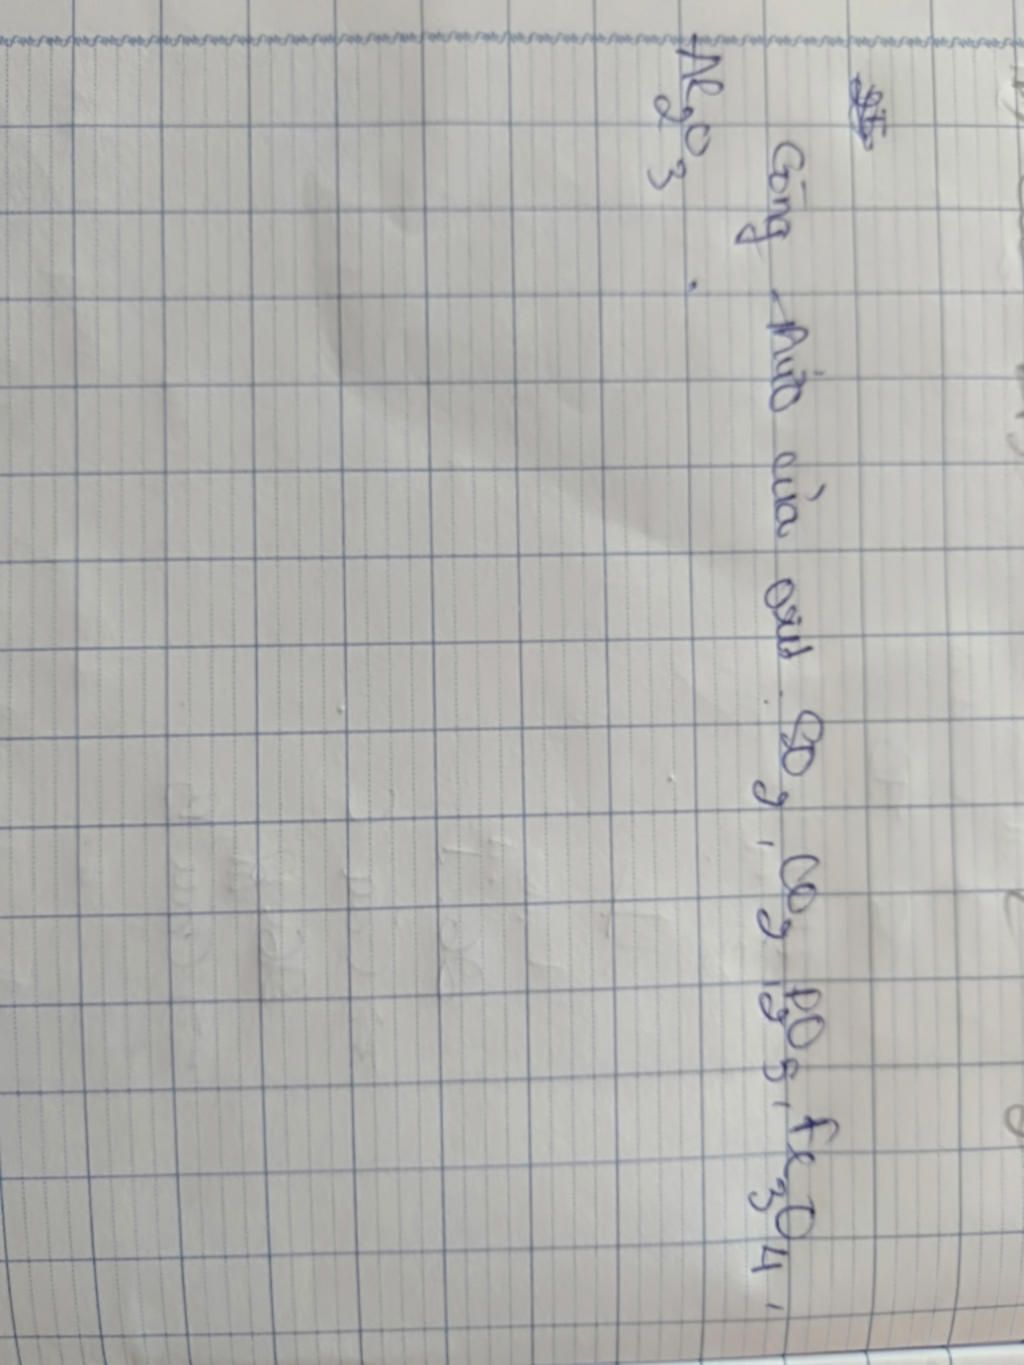 Công thức của oxit SO2, CO2, P2O5, Fe3O4,
Al2O3.